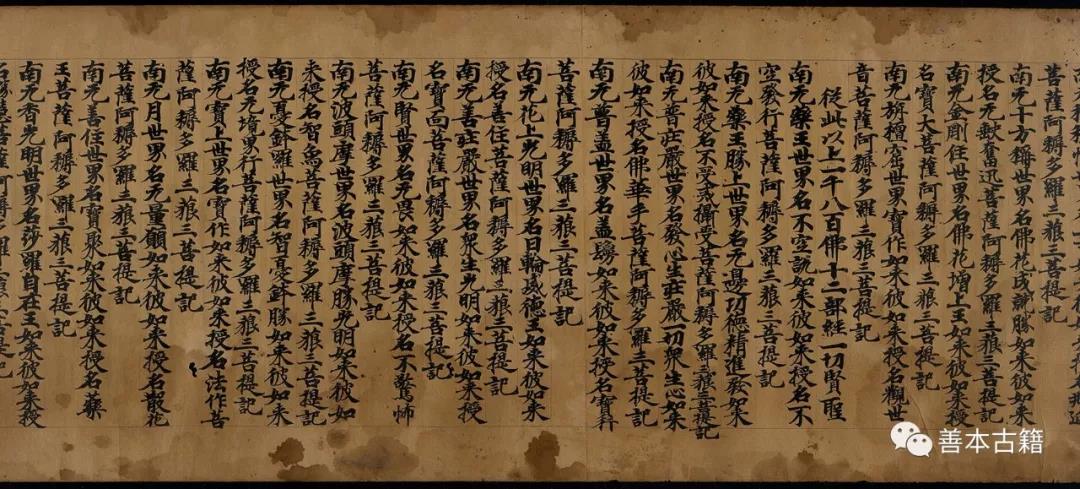 菩薩阿耨多羅三藐三菩提記
南无十方稱世界名佛花成就勝如来彼如来
授名无猒奮迅菩薩阿耨多羅三藐三菩提記
南无金剛住世界名佛花增上王如来彼如来授
名寶大菩薩阿耨多羅三藐三菩提記
南无旃檀窟世界寶作如来彼如来授名觀世
音菩薩阿耨多羅三藐三菩提記
從此以上一千八百佛十二部経一切賢聖
南无藥王世界名不空說如来彼如来授名不
空發行菩薩阿耨多羅三藐三菩提記
南无藥王勝上世界名无邊功德精進發如来
彼如来授名不受攝受菩薩阿耨多羅三藐三菩提記
南无普莊嚴世界名發心生莊嚴一切衆生心如来
彼如来授名佛華手菩薩阿耨多羅三藐三菩提記
南无普盖世界名盖鬘如来彼如来授名寶
菩薩阿耨多羅三藐三菩提記
南无花上光明世界名日輪威德王如来彼如来
授名善住菩薩阿耨多羅三藐三菩提記
南无善莊嚴世界名衆生光明如来彼如来授
名寶面菩薩阿耨多羅三藐三菩提記
南无賢世界名无畏如来彼如来授名不驚怖
菩薩阿耨多羅三藐三菩提記
南无波頭摩世界名波頭摩勝光明如来彼如
来授名智鳥菩薩阿耨多羅三藐三菩提記
南无憂鉢羅世界名智憂鉢勝如来彼如来
授名无境界行菩薩阿耨多羅三藐三菩提記
南无寶上世界名寶作如来彼如来授名法作菩
薩阿耨多羅三藐三菩提記
南无月世界名无量願如来彼如来授名散花
菩薩阿耨多羅三藐三菩提記
南无善住世界名寶聚如来彼如来授名藥
王菩薩阿耨多羅三藐三菩提記
南无香光明世界名莎羅自在王如来彼如来授
善本古籍